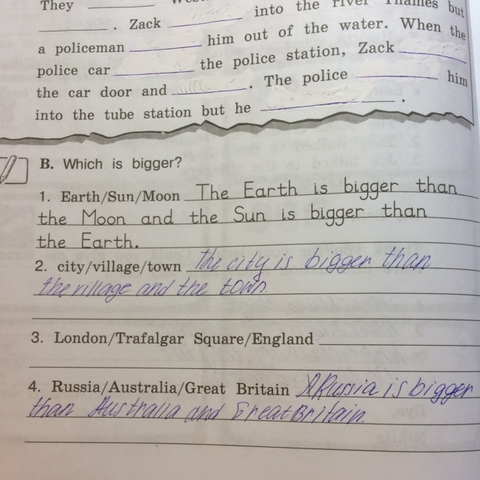 They
. Zack into the river Thames but
a policeman him out of the water. When the
police car the police station, Zack
the car door and . The police him
into the tube station but he .
B. Which is bigger?
1. Earth/Sun/Moon The Earth is bigger than
the Moon and the Sun is bigger than
the Earth.
2. city/village/town The city is bigger than
the village and the town
3. London/Trafalgar Square/England
4. Russia/Australia/Great Britain Russia is bigger
than Australia and Great Britain